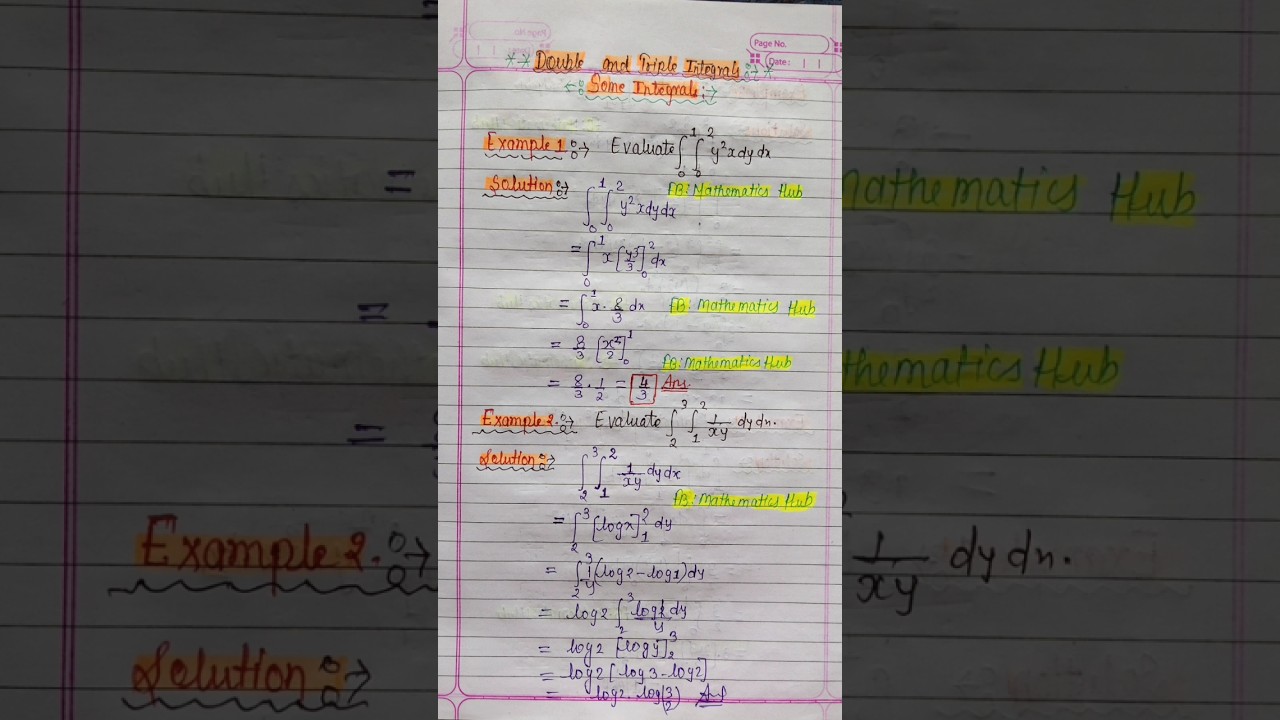 Page No.
Date:
Double and Triple Integrals
Some Integrals
Example 1 Evaluate ∫₀¹ ∫₀² y²x dy dx
Solution: FB: Mathematics Hub
∫₀¹ ∫₀² y²x dy dx
= ∫₀¹ x [y³/3]₀² dx
= ∫₀¹ x · 8/3 dx FB: Mathematics Hub
= 8/3 [x²/2]₀¹
FB: Mathematics Hub
= 8/3 · 1/2 = 4/3 Ans
Example 2. Evaluate ∫₂³ ∫₁² 1/xy dy dx.
Solution: ∫₂³ ∫₁² 1/xy dy dx
FB: Mathematics Hub
= ∫₂³ [log x]₁² dy
= ∫₂³ 1/y (log 2 - log 1) dy
= log 2 ∫₂³ dy
= log 2 [log y]₂³
= log 2 [log 3 - log 2]
= log 2 · log (3/2) Ans